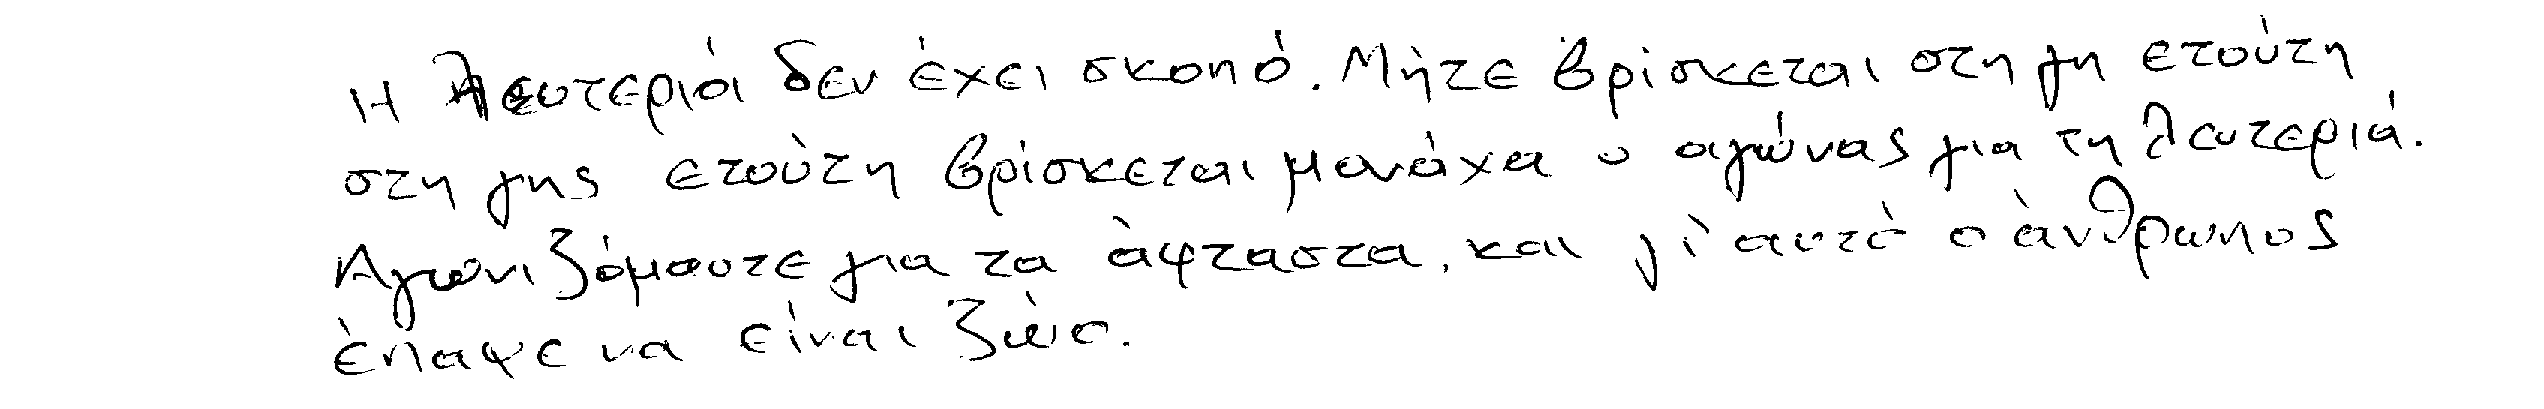 Η λευτεριά δεν έχει σκοπό. Μήτε βρίσκεται στη γη ετούτη
στη γης ετούτη βρίσκεται μονάχα ο αγώνας για τη λευτεριά.
Αγωνιζόμαστε για τα άφταστα, και γι αυτό ο άνθρωπος
έπαψε να είναι ζώο.